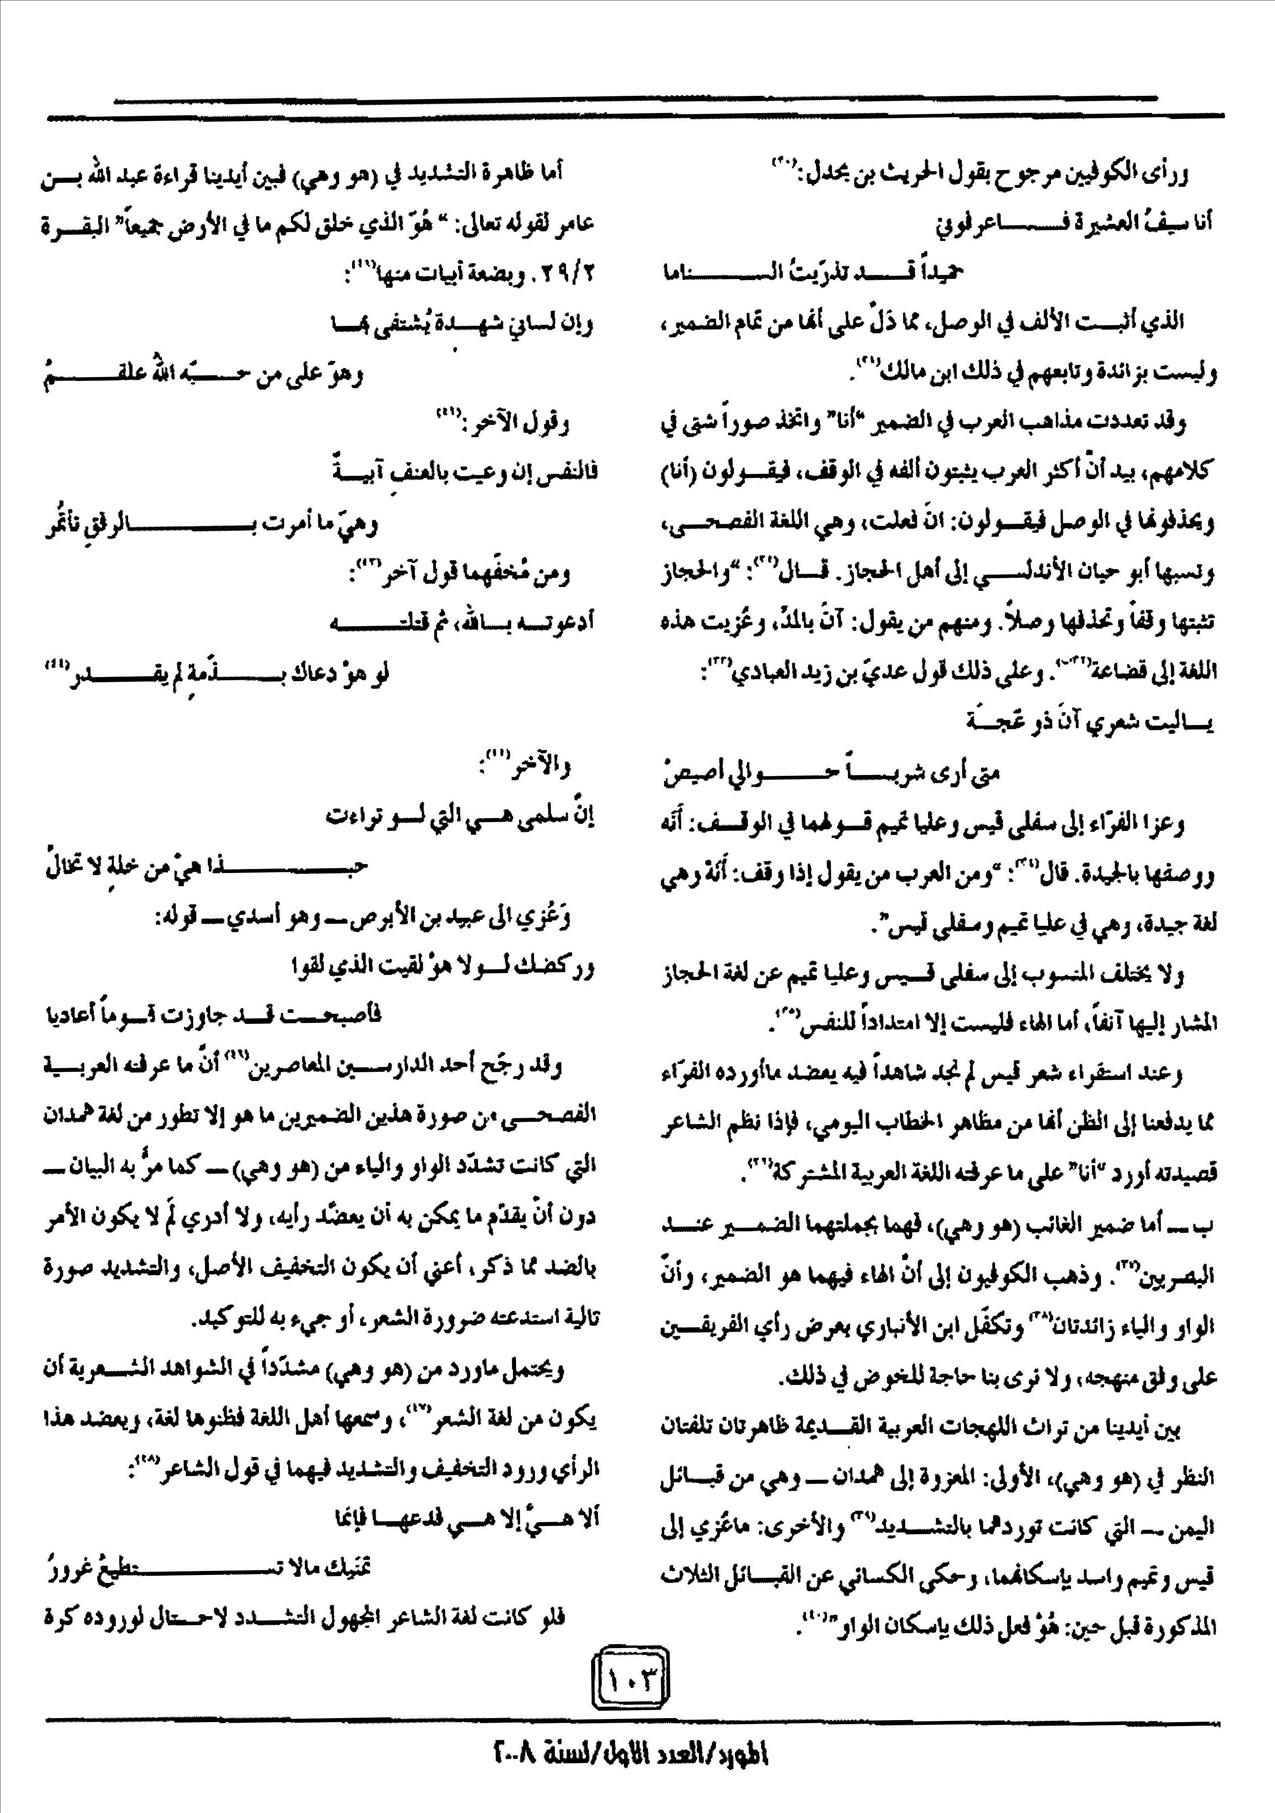 ورأى الكوفيين مرجوح بقول الحريث بن بحدل:(٢٠)
أنا سيفُ العشيرة فـــاعرفوني
حميداً قــد تذرّيتُ الســـناما
الذي أثبــت الألف في الوصل، مما دَلَّ على أنها من تمام الضمير،
وليست بزائدة وتابعهم في ذلك ابن مالك(٢١).
وقد تعددت مذاهب العرب في الضمير “أنا” واتخذ صوراً شتى في
كلامهم، بيد أنّ أكثر العرب يثبتون ألفه في الوقف، فيقــولون (أنا)
ويحذفونها في الوصل فيقــولون: انَ فعلت، وهي اللغة الفصحــى،
ونسبها أبو حيان الأندلســي إلى أهل الحجاز. قــال(٢٢): “والحجاز
تثبتها وقفاً وتحذفها وصلاً. ومنهم من يقول: آنَ بالمدّ، وعُزيت هذه
اللغة إلى قضاعة. وعلى ذلك قول عديّ بن زيد العبادي(٢٣):
يــاليت شعري آنَ ذو عَجــّة
متى أرى شربــاً حـــوالي أصيصْ
وعزا الفرّاء إلى سفلى قيس وعليا تميم قــولهما في الوقــف: أَنَه
ووصفها بالجيدة. قال(٢٤): “ومن العرب من يقول إذا وقف: أَنَهْ وهي
لغة جيدة، وهي في عليا تميم وسفلى قيس”.
ولا يختلف المنسوب إلى سفلى قــيس وعليا تميم عن لغة الحجاز
المشار إليها آنفاً، أما الهاء فليست إلا امتداداً للنفس(٢٥).
وعند استقراء شعر قيس لم نجد شاهداً فيه يعضد ماأورده الفرّاء
مما يدفعنا إلى الظن أنها من مظاهر الخطاب اليومي، فإذا نظم الشاعر
قصيدته أورد “أنا” على ما عرفته اللغة العربية المشتركة(٢٦).
ب ــ أما ضمير الغائب (هو وهي)، فهما بجملتهما الضمــير عنــد
البصريين(٢٧). وذهب الكوفيون إلى أنَّ الهاء فيهما هو الضمير، وأنّ
الواو والياء زائدتان(٢٨) وتكفّل ابن الأنباري بعرض رأي الفريقــين
على وفق منهجه، ولا نرى بنا حاجة للخوض في ذلك.
بين أيدينا من تراث اللهجات العربية القــديمة ظاهرتان تلفتان
النظر في (هو وهي)، الأولى: المعزوة إلى همدان ــ وهي من قبــائل
اليمن ــ التي كانت توردهما بالتشــديد(٣٩) والأخرى: ماعُزي إلى
قيس وتميم واسد بإسكانهما، وحكى الكسائي عن القبــائل الثلاث
المذكورة قبل حين: هُوْ فعل ذلك بإسكان الواو”(٤٠).
أما ظاهرة التشديد في (هو وهي) فبين أيدينا قراءة عبد الله بــن
عامر لقوله تعالى: “هُوّ الذي خلق لكم ما في الأرض جميعاً” البقــرة
٢٩/٢. وبضعة أبيات منها(٤١):
وإن لساني شهــدة يُشتفى بهــا
وهوّ على من صــبّه اللهُ علقـــمُ
وقول الآخر:(٤١)
فالنفس إن وعيت بالعنفِ آبيــةٌ
وهيّ ما أمرت بـــــالرفقِ تأتمُر
ومن مُخفّهما قول آخر(٤٣):
أدعوتــه بــالله، ثم قتلتـــه
لو هوْ دعاك بـــذمةٍ لم يقــدر(٤٤)
والآخر(٤٤):
إنّ سلمى هــي التي لــو تراءت
حبـــــذا هيْ من خلةٍ لا تخالُ
وَعُزي الى عبيد بن الأبرص ــ وهو أسدي ــ قوله:
وركضك لــولا هوْ لقيت الذي لقوا
فأصبحــت قــد جاوزت قــوماً أعاديا
وقد رجّح أحد الدارســين المعاصرين(٤٦) أنّ ما عرفته العربيــة
الفصحــى من صورة هذين الضميرين ما هو إلا تطور من لغة همدان
التي كانت تشدّد الواو والياء من (هو وهي) ــ كما مرَّ به البيان ــ
دون أنْ يقدّم ما يمكن به أن يعضّد رأيه، ولا أدري لَم لا يكون الأمر
بالضد مما ذكر، أعني أن يكون التخفيف الأصل، والتشديد صورة
تالية استدعته ضرورة الشعر، أو جيء به للتوكيد.
ويحتمل ماورد من (هو وهي) مشدّداً في الشواهد الشــعرية أن
يكون من لغة الشعر(٤٧)، وسمعها أهل اللغة فظنوها لغة، ويعضد هذا
الرأي ورود التخفيف والتشديد فيهما في قول الشاعر(٤٨):
ألا هــيَّ إلا هــي فدعهــا فإنما
تمنيك مالا تســـــتطيعُ غرورُ
فلو كانت لغة الشاعر المجهول التشــدد لاحــتال لوروده كرة
١٠٣
المورد/العدد الأول/لسنة ٢٠٠٨